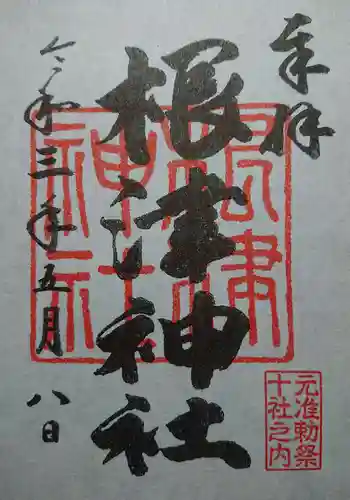 奉拝
根津神社
令和三年五月八日
根津神社
元准勅祭
十社之内